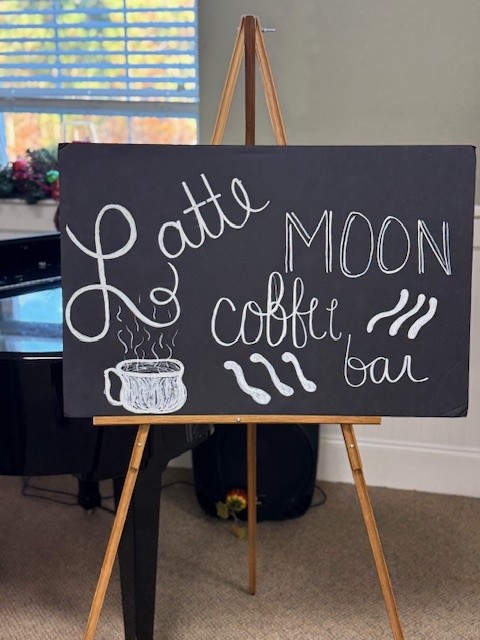 Latte MOON
coffee
bar